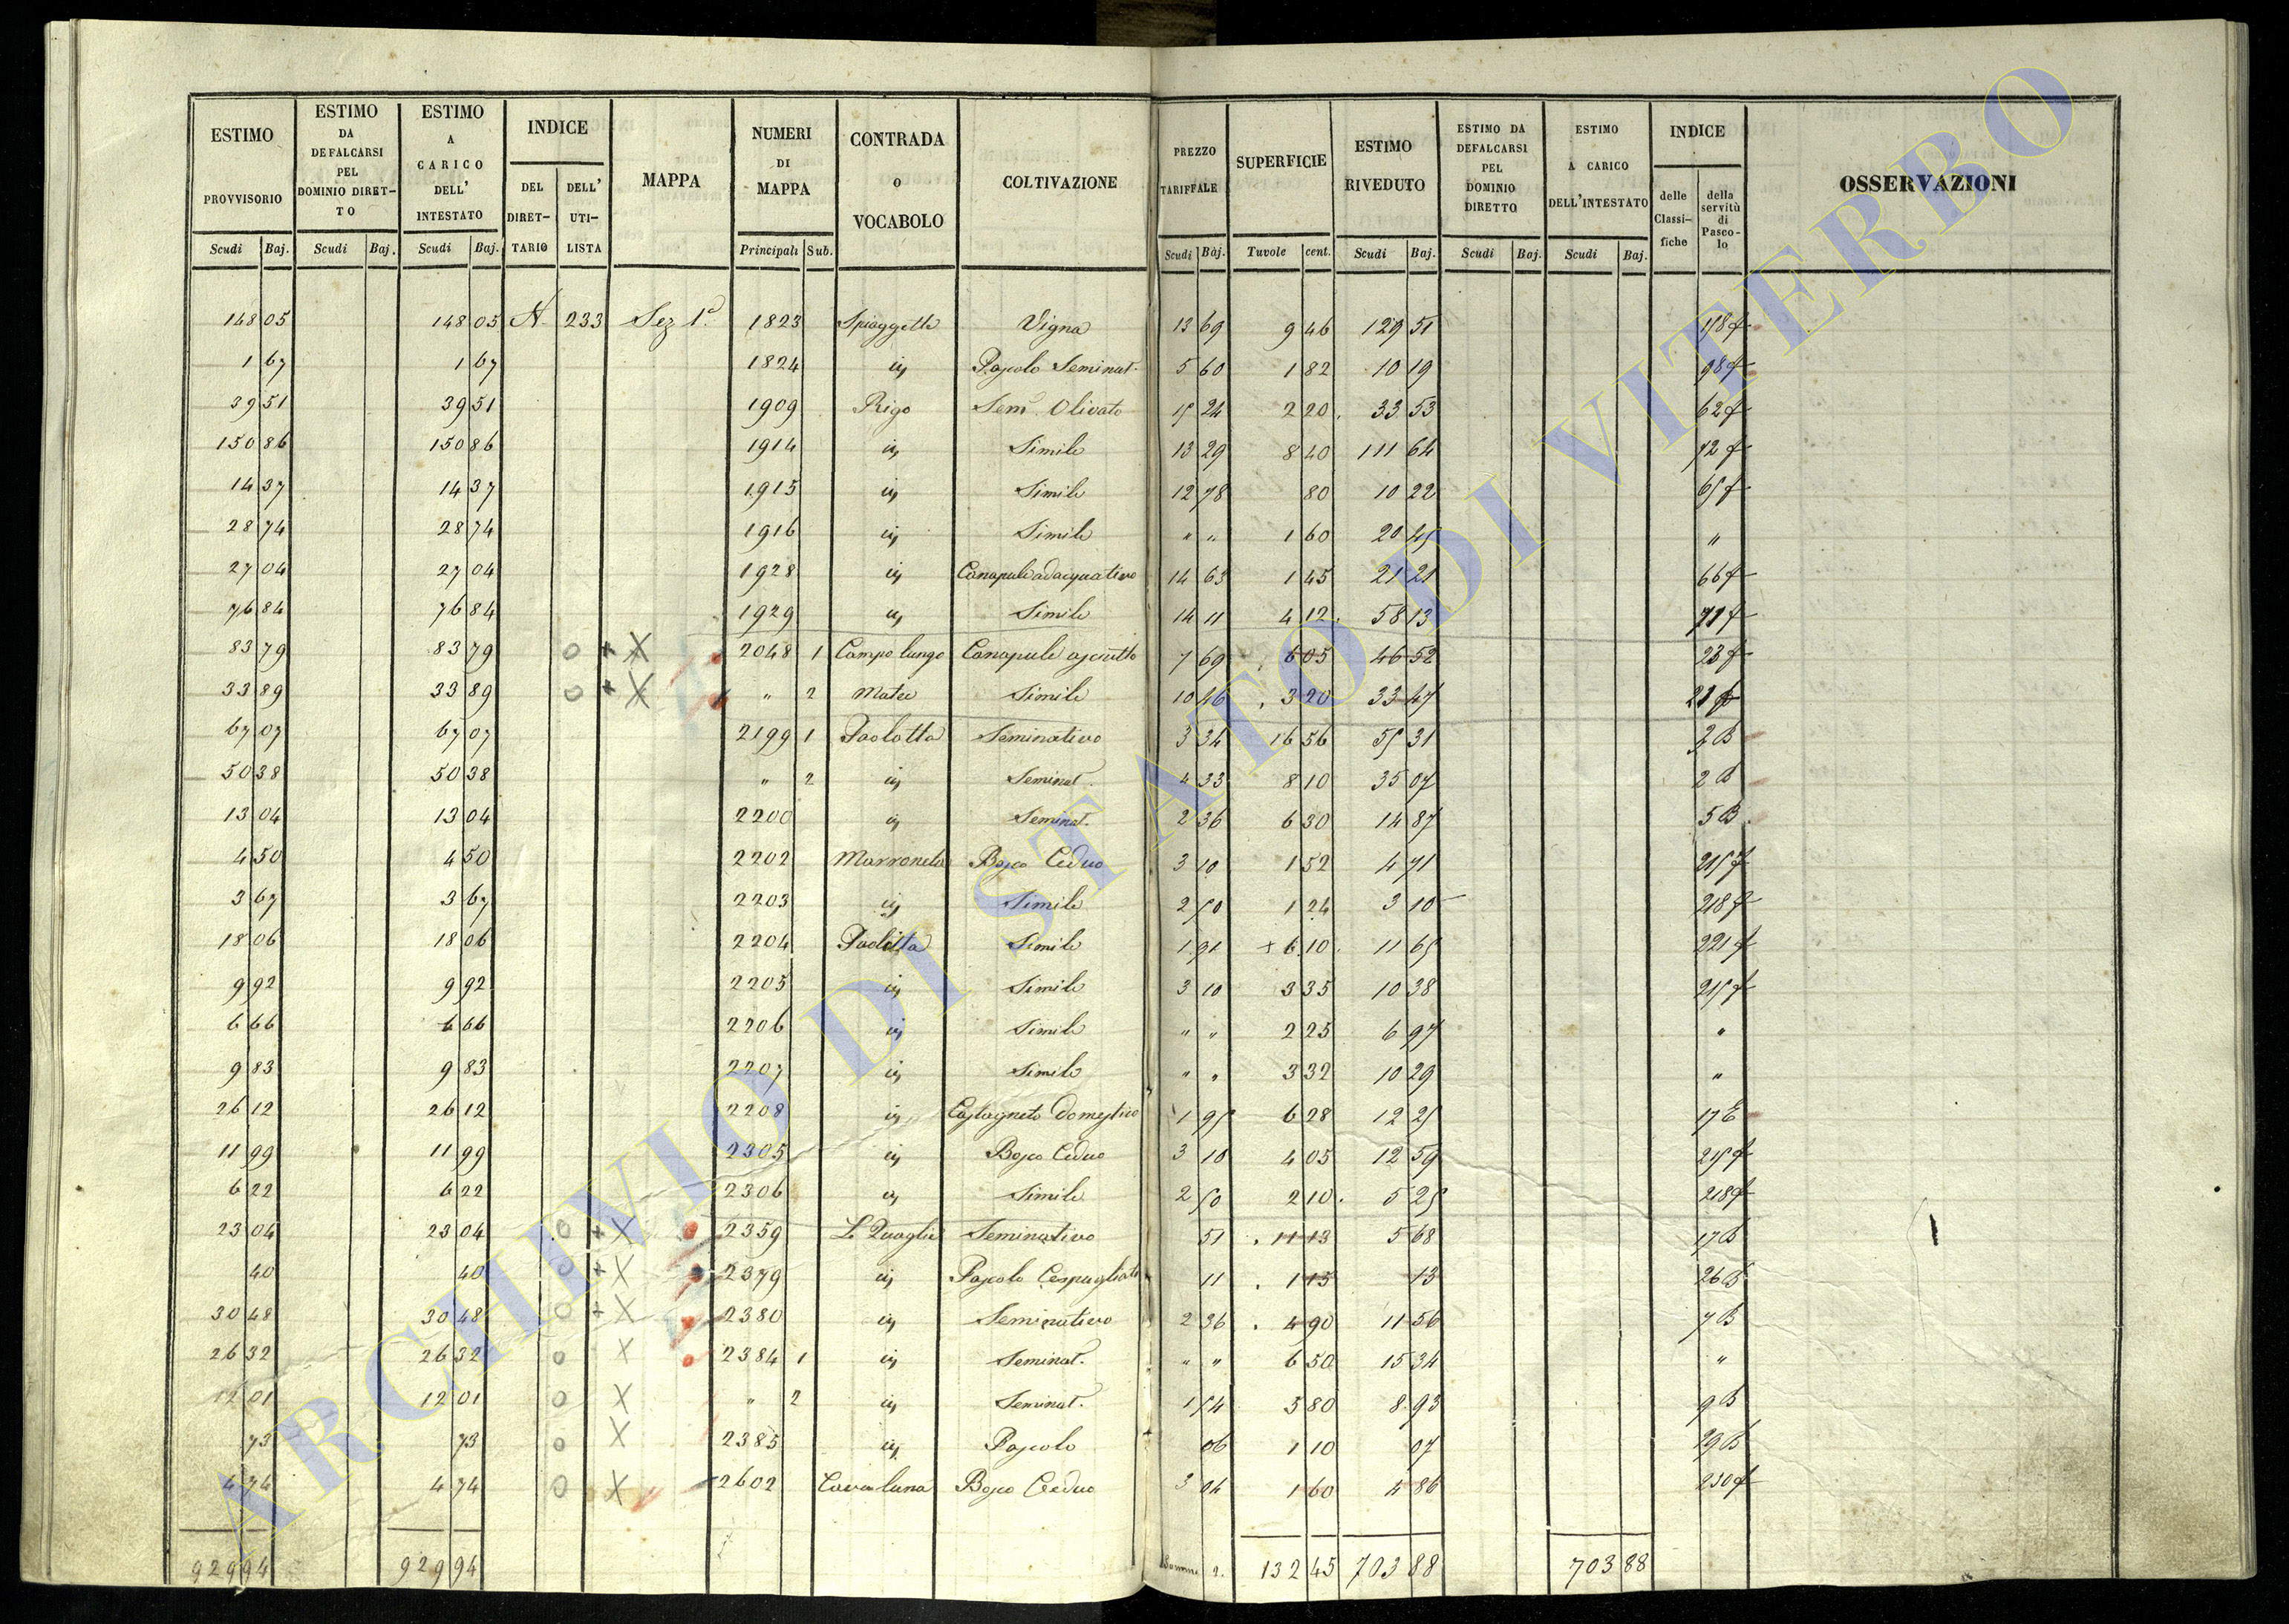 ESTIMO PROVVISORIO Scudi Baj. | ESTIMO DA DEFALCARSI PEL DOMINIO DIRETTO Scudi Baj. | ESTIMO A CARICO DELL' INTESTATO Scudi Baj. | INDICE DEL DIRETTARIO | DELL' UTILISTA | MAPPA | NUMERI DI MAPPA Principali Sub. | CONTRADA O VOCABOLO | COLTIVAZIONE | PREZZO TARIFFALE Scudi Baj. | SUPERFICIE Tavole cent. | ESTIMO RIVEDUTO Scudi Baj. | ESTIMO DA DEFALCARSI PEL DOMINIO DIRETTO Scudi Baj. | ESTIMO A CARICO DELL'INTESTATO Scudi Baj. | INDICE delle Classifiche | della servitù di Pascolo | OSSERVAZIONI
148 05 148 05 A 233 Sez 1ª 1823 Spiaggette Vigna 13 69 9 46 129 51
1 67 1 67 1824 id Pascolo Seminat. 5 60 1 82 10 19 98 f
39 51 39 51 1909 Rigo Sem Olivato 15 24 2 20 33 53 62 f
150 86 150 86 1914 id Simile 13 29 8 40 111 64 72 f
14 37 14 37 1915 id Simile 12 78 80 10 22 65 f
28 74 28 74 1916 id Simile " " 1 60 20 45 "
27 04 27 04 1928 id Canapule adacquativo 14 63 1 45 21 21 66 f
76 84 76 84 1929 id Simile 14 11 4 12 58 13 71 f
83 79 83 79 O + X 2048 1 Campo lungo Canapule asciutto 7 69 6 05 46 52 23 f
33 89 33 89 O + X " 2 Simile 10 46 3 20 33 47
67 07 67 07 2199 1 Paolotta Seminativo 3 34 16 56 55 31 2 B
50 38 50 38 " 2 id Seminat. 4 33 8 10 35 07 2 B
13 04 13 04 2200 id Seminat. 2 36 6 30 14 87 5 B
4 50 4 50 2202 Marroneta Bosco Ceduo 3 10 1 52 4 71 215 f
3 67 3 67 2203 id Simile 2 50 1 24 3 10 218 f
18 06 18 06 2204 Paolotta Simile 1 91 + 6 10 11 65 221 f
9 92 9 92 2205 id Simile 3 10 3 35 10 38 215 f
6 66 6 66 2206 id Simile " " 2 25 6 97 "
9 83 9 83 2207 id Simile " " 3 32 10 29 "
26 12 26 12 2208 id Castagneto domestico 1 95 6 28 12 25 17 E
11 99 11 99 2305 id Bosco Ceduo 3 10 4 05 12 59 215 f
6 22 6 22 2306 id Simile 2 50 2 10 5 25 218 f
23 04 23 04 O + X 2359 Le Quaglie Seminativo 51 11 13 5 68 17 B
40 40 O + X 2379 id Pascolo Cespugliato 11 1 15 13 26 B
30 48 30 48 O + X 2380 id Seminativo 2 36 4 90 11 56 7 B
26 32 26 32 O X 2384 1 id Seminat. " " 6 50 15 34 "
12 01 12 01 O X " 2 id Seminat. 1 54 5 80 8 93 9 B
73 73 O X 2385 id Pascolo 06 1 10 07 29 B
4 74 4 74 O X 2602 Cavaluna Bosco Ceduo 3 04 1 60 4 86 230 f
929 94 929 94 132 45 703 88 703 88
ARCHIVIO DI STATO DI VITERBO